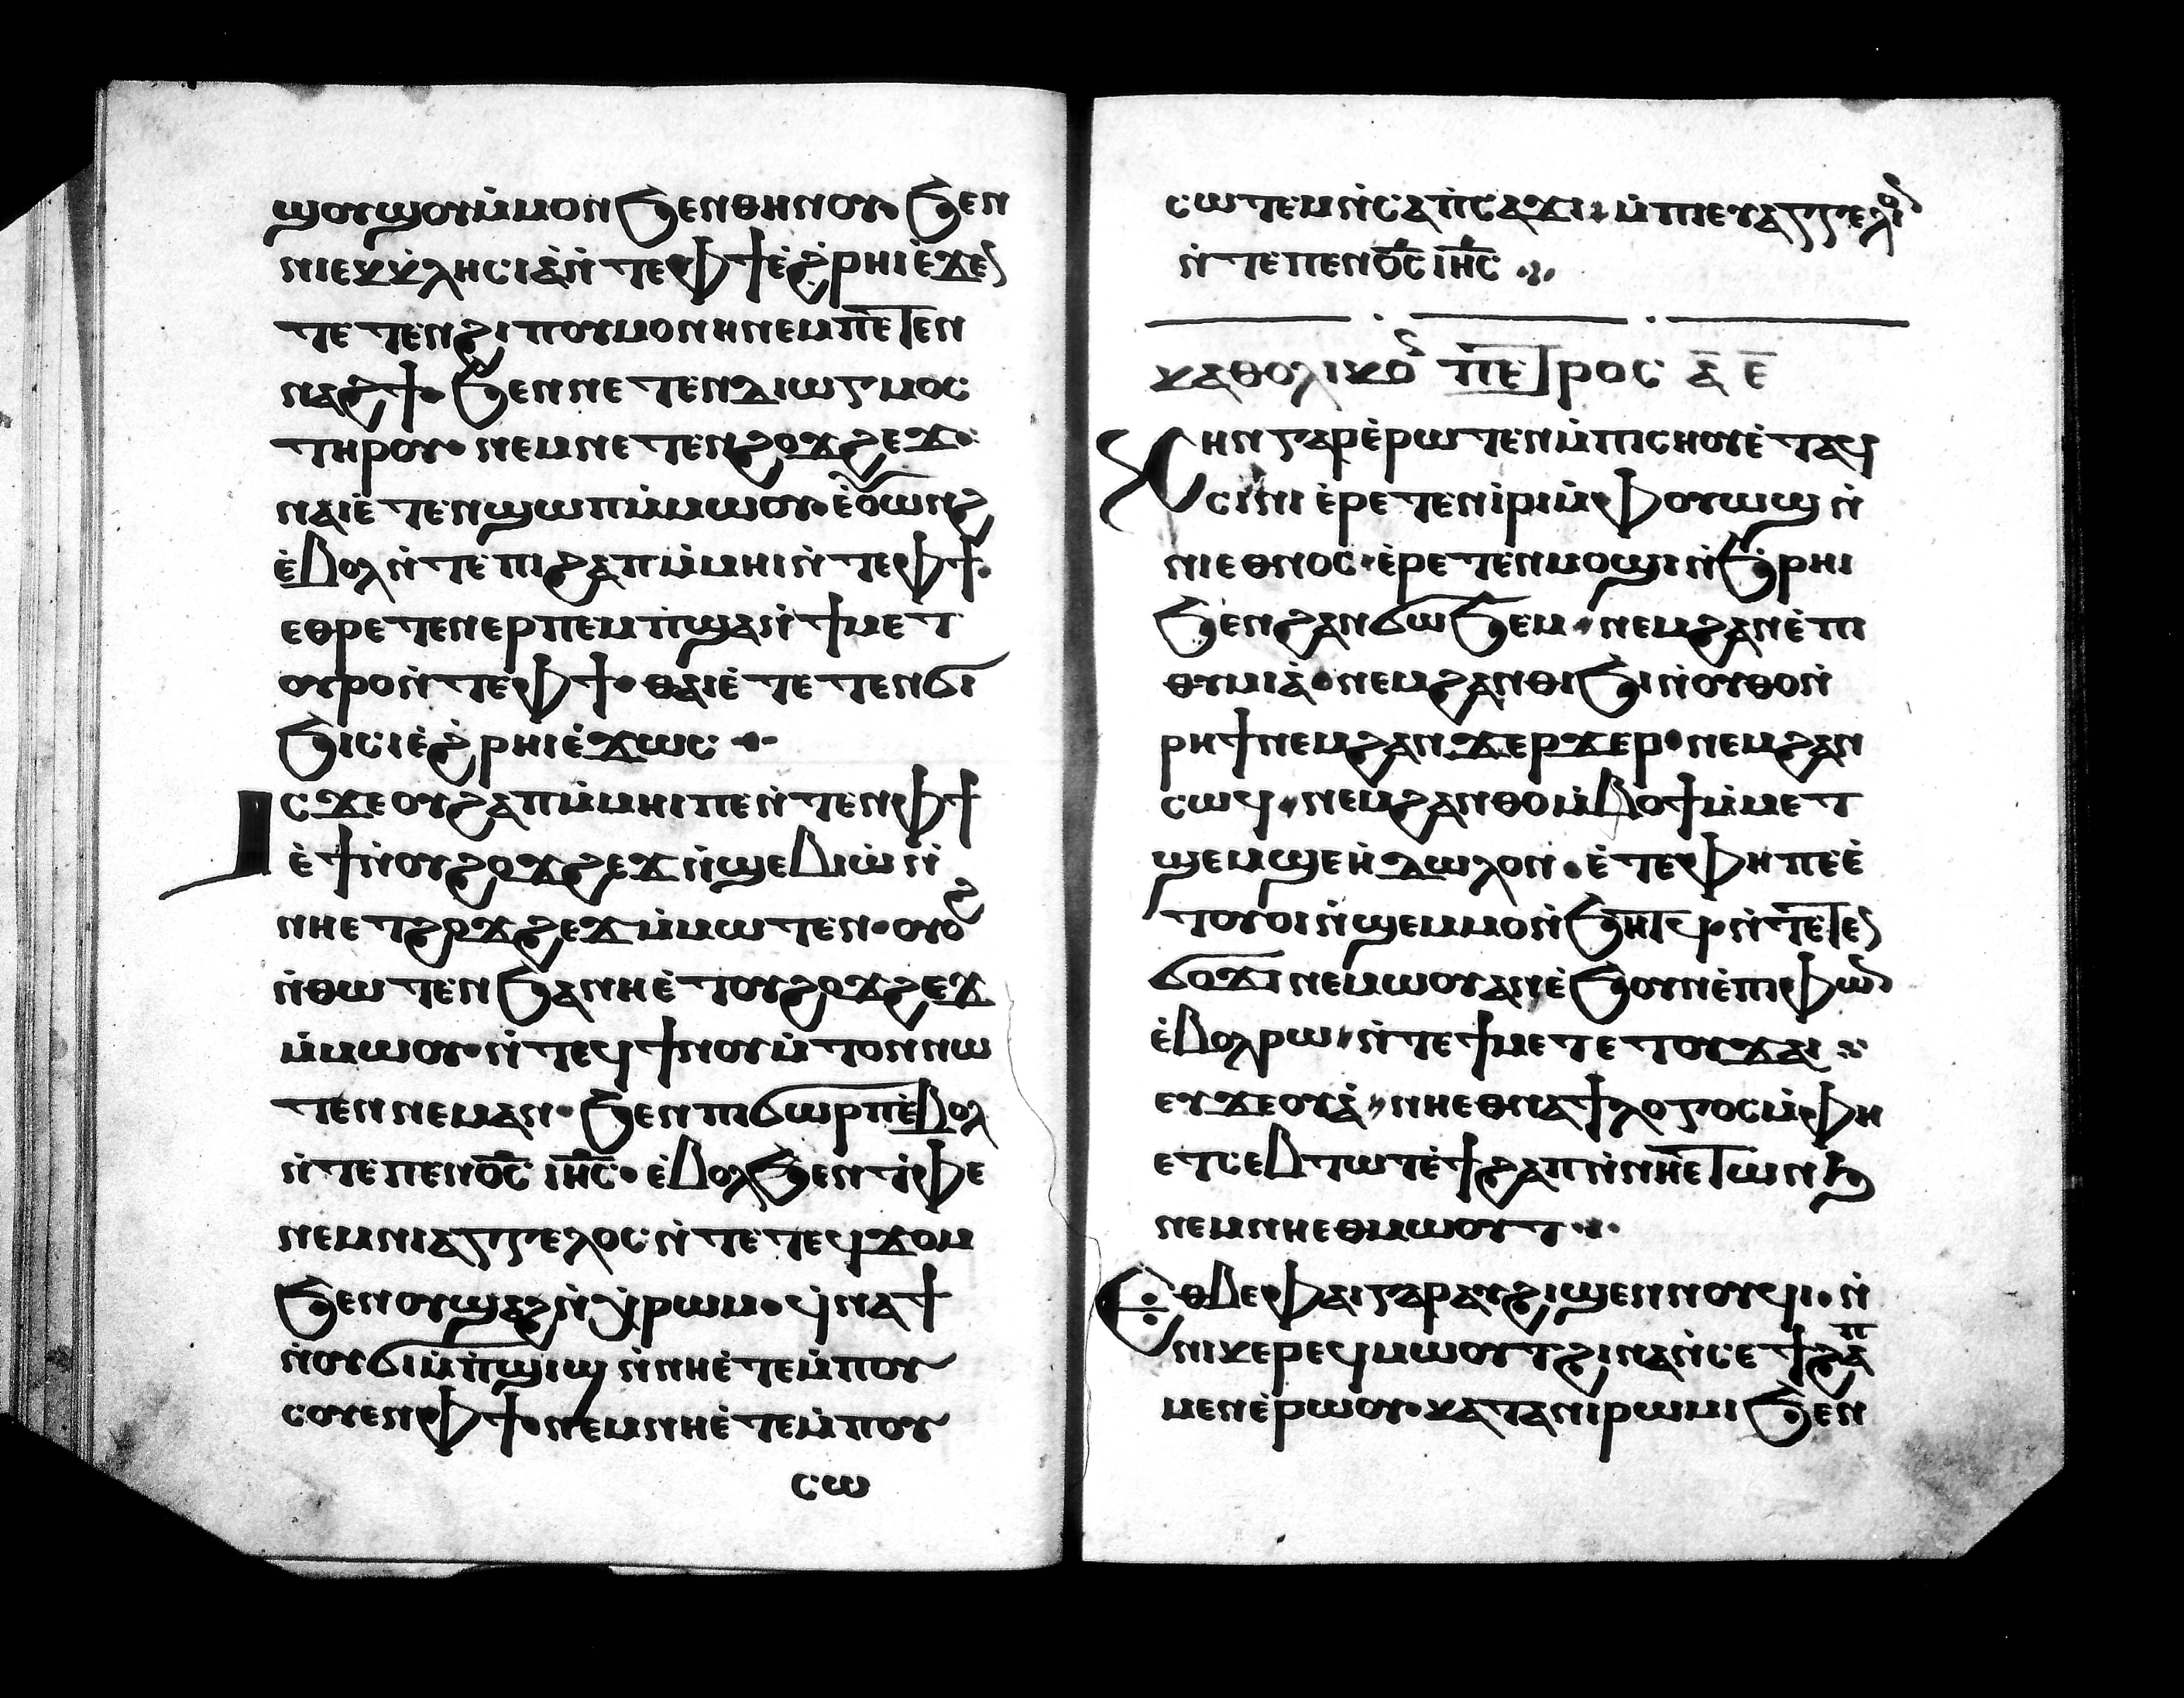 ϣⲟⲩϣⲟⲩⲙ̇ⲙⲟⲛϧⲉⲛⲑⲏⲛⲟⲩ· ϧⲉⲛ
ⲛⲓⲉⲕⲕⲗⲏⲥⲓⲁ̇ⲛ̇ⲧⲉⲫϯⲉ̇ϩ̇ⲣⲏⲓⲉ̇ϫⲉ
ⲧⲉⲧⲉⲛϩⲓⲡⲟⲩⲙⲟⲛⲏⲛⲉⲙⲡⲉⲧⲉⲛ
ⲛⲁϩϯ· ϧⲉⲛⲛⲉⲧⲉⲛⲇⲓⲱⲅⲙⲟⲥ
ⲧⲏⲣⲟⲩ· ⲛⲉⲙⲛⲉⲧⲉⲛϩⲟϫϩⲉϫ·
ⲛⲁⲓⲉ̇ⲧⲉⲛϣⲱⲡⲙ̇ⲙⲱⲟⲩ· ⲉ̇ⲟⲩⲱⲛϩ
ⲉ̇ⲃⲟⲗⲛ̇ⲧⲉⲡⲓϩⲁⲡⲙ̇ⲙⲏⲓⲛ̇ⲧⲉⲫϯ·
ⲉⲑⲣⲉⲧⲉⲛⲉⲣⲡⲉⲙⲡ̇ϣⲁⲛ̇ϯⲙⲉⲧ
ⲟⲩⲣⲟⲛ̇ⲧⲉⲫϯ· ⲑⲁⲓⲉ̇ⲧⲉⲧⲉⲛϭⲓ
ϧⲓⲥⲓⲉ̇ϩ̇ⲣⲏⲓⲉ̇ϫⲱⲥ ·
Ⲓⲥϫⲉⲟⲩϩⲁⲡⲙ̇ⲙⲏⲓⲡⲉⲛ̇ⲧⲉⲛⲫϯ
ⲉ̇ϯⲛ̇ⲟⲩϩⲟϫϩⲉϫⲛ̇ϣⲉⲃⲓⲱ̇ⲛ̇
ⲛⲏⲉⲧϩⲟϫϩⲉϫⲙ̇ⲙⲱⲧⲉⲛ· ⲟⲩⲟϩ
ⲛ̇ⲑⲱⲧⲉⲛϧⲁⲛⲏⲉ̇ⲧⲟⲩϩⲟϫϩⲉϫ
ⲙ̇ⲙⲱⲟⲩ·ⲛ̇ⲧⲉϥϯⲛⲟⲩⲙ̇ⲧⲟⲛⲛⲱ
ⲧⲉⲛⲛⲉⲙⲁⲛ· ϧⲉⲛⲡⲓϭⲱⲣⲡⲉ̇ⲃⲟⲗ
ⲛ̇ⲧⲉⲡⲉⲛⲟ̅ⲥ̅ ⲓⲏ̅ⲥ̅· ⲉ̇ⲃⲟⲗϧⲉⲛⲧ̇ⲫⲉ
ⲛⲉⲙⲛⲓⲁⲅⲅⲉⲗⲟⲥⲛ̇ⲧⲉⲧⲉϥϫⲟⲙ
ϧⲉⲛⲟⲩϣⲁϩⲛ̇ⲭ̇ⲣⲱⲙ· ϥ̇ⲛⲁϯ
ⲛ̇ⲟⲩϭⲓⲙ̇ⲡ̇ϣⲓϣ ⲛ̇ⲛⲏⲉ̇ⲧⲉⲙ̇ⲡⲟⲩ
ⲥⲟⲩⲉⲛⲫϯ·ⲛⲉⲙⲛⲏⲉ̇ⲧⲉⲙ̇ⲡⲟⲩ
ⲥⲱ
ⲥⲱⲧⲉⲙⲛ̇ⲥⲁⲡ̇ⲥⲁϫⲓ· ⲙ̇ⲡⲓⲉⲩⲁⲅⲅⲉⲗⲓⲟ
ⲛ̇ⲧⲉⲡⲉⲛⲟ̅ⲥ̅ ⲓⲏ̅ⲥ̅ ·
ⲕⲁⲑⲟⲗⲓⲕⲟ ⲡⲉⲧⲣⲟⲥ ⲁ̅ ⲉ̅
Ⲭⲏⲛⲅⲁⲣⲉ̇ⲣⲱⲧⲉⲛⲙ̇ⲡⲓⲥⲏⲟⲩⲉ̇ⲧⲁϥ
ⲥⲓⲛⲓ ⲉ̇ⲣⲉⲧⲉⲛⲓ̇ⲣⲓⲙ̇ⲫⲟⲩⲱϣ ⲛ̇
ⲛⲓⲉⲑⲛⲟⲥ·ⲉ̇ⲣⲉⲧⲉⲛⲙⲟϣⲓⲛ̇ϧⲣⲏⲓ
ϧⲉⲛϩⲁⲛϭⲱϧⲉⲙ·ⲛⲉⲙϩⲁⲛⲉ̇ⲡⲓ
ⲑⲩⲙⲓⲁ̇·ⲛⲉⲙϩⲁⲛⲑⲓϧⲓⲛ̇ⲟⲩⲑⲟⲛ̇
ⲣⲏϯⲛⲉⲙϩⲁⲛϫⲉⲣϫⲉⲣ·ⲛⲉⲙϩⲁⲛ
ⲥⲱϥ·ⲛⲉⲙϩⲁⲛⲑⲟⲙ̇ⲃⲟϯⲙ̇ⲙⲉⲧ
ϣⲉⲙϣⲉⲏ̇ⲇⲱⲗⲟⲛ·ⲉ̇ⲧⲉⲫⲏⲡⲉⲉ̇
ⲧⲟⲩⲟⲓⲛ̇ϣⲉⲙⲙⲟⲛ̇ϧⲏⲧϥ·ⲛ̇ⲧⲉⲧⲉ
ϭⲟϫⲓⲛⲉⲙⲱⲟⲩⲁⲛⲉ̇ϧⲟⲩⲛⲉ̇ⲡⲓⲫⲱ
ⲉ̇ⲃⲟⲗⲣⲱ·ⲛ̇ⲧⲉϯⲙⲉⲧⲉⲧⲟⲩϫⲁⲓ
ⲉⲩϫⲉⲟⲩⲁ̇·ⲛⲏⲉⲑⲛⲁϯⲗⲟⲅⲟⲥⲙ̇ⲫⲏ
ⲉⲧⲥⲉⲃⲧⲱⲧⲉ̇ϯϩⲁⲡⲛ̇ⲛⲏⲉⲧⲱⲛϧ
ⲛⲉⲙⲛⲏⲉⲑⲙⲱⲟⲩⲧ··
Ⲉⲑⲃⲉⲫⲁⲓⲅⲁⲣⲁⲩϩⲓϣⲉⲛⲛⲟⲩϥⲓ·ⲛ̇
ⲛⲓⲕⲉⲣⲉϥⲙⲱⲟⲩⲧϩⲓⲛⲁⲛ̇ⲥⲉϯϩⲁⲡ
ⲙⲉⲛⲉ̇ⲣⲱⲟⲩ·ⲕⲁⲧⲁⲛⲓⲣⲱⲙⲓϧⲉⲛ